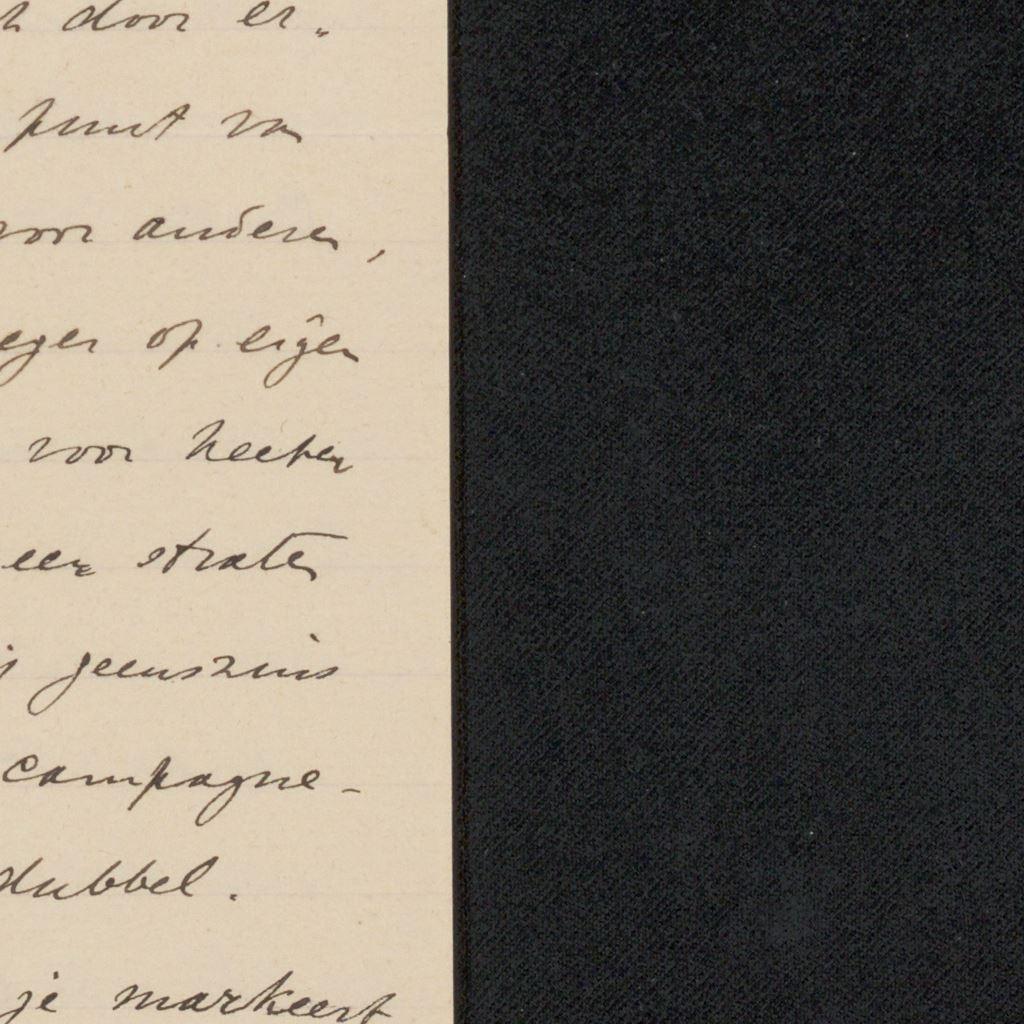 door er„
punt van
voor anderen,
op eigen
voor heeten
een straten
geenszins
campagne-
dubbel.
je markeert